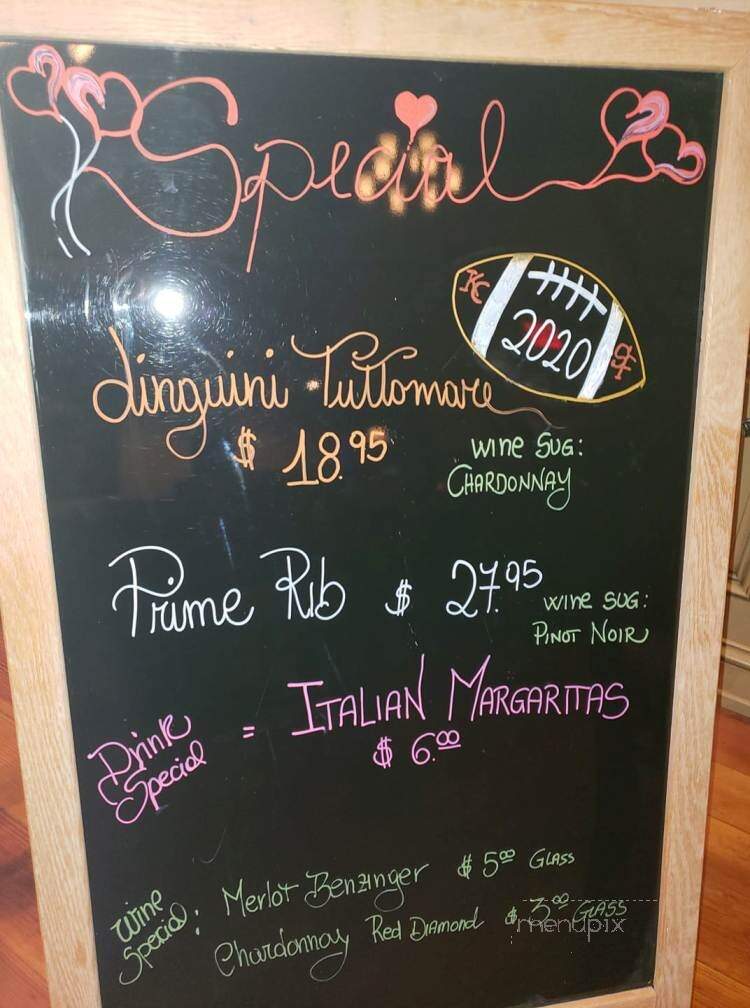 Special
KC
2020
SF
Linguini Tuttomare
$ 18.95
WINE SUG:
CHARDONNAY
Prime Rib $ 27.95
WINE SUG:
PINOT NOIR
Drink
Special
= ITALIAN MARGARITAS
$ 6.00
Wine
Special:
Merlot Benzinger $ 5.00 GLASS
Chardonnay Red Diamond $ 3.00 GLASS
menupix